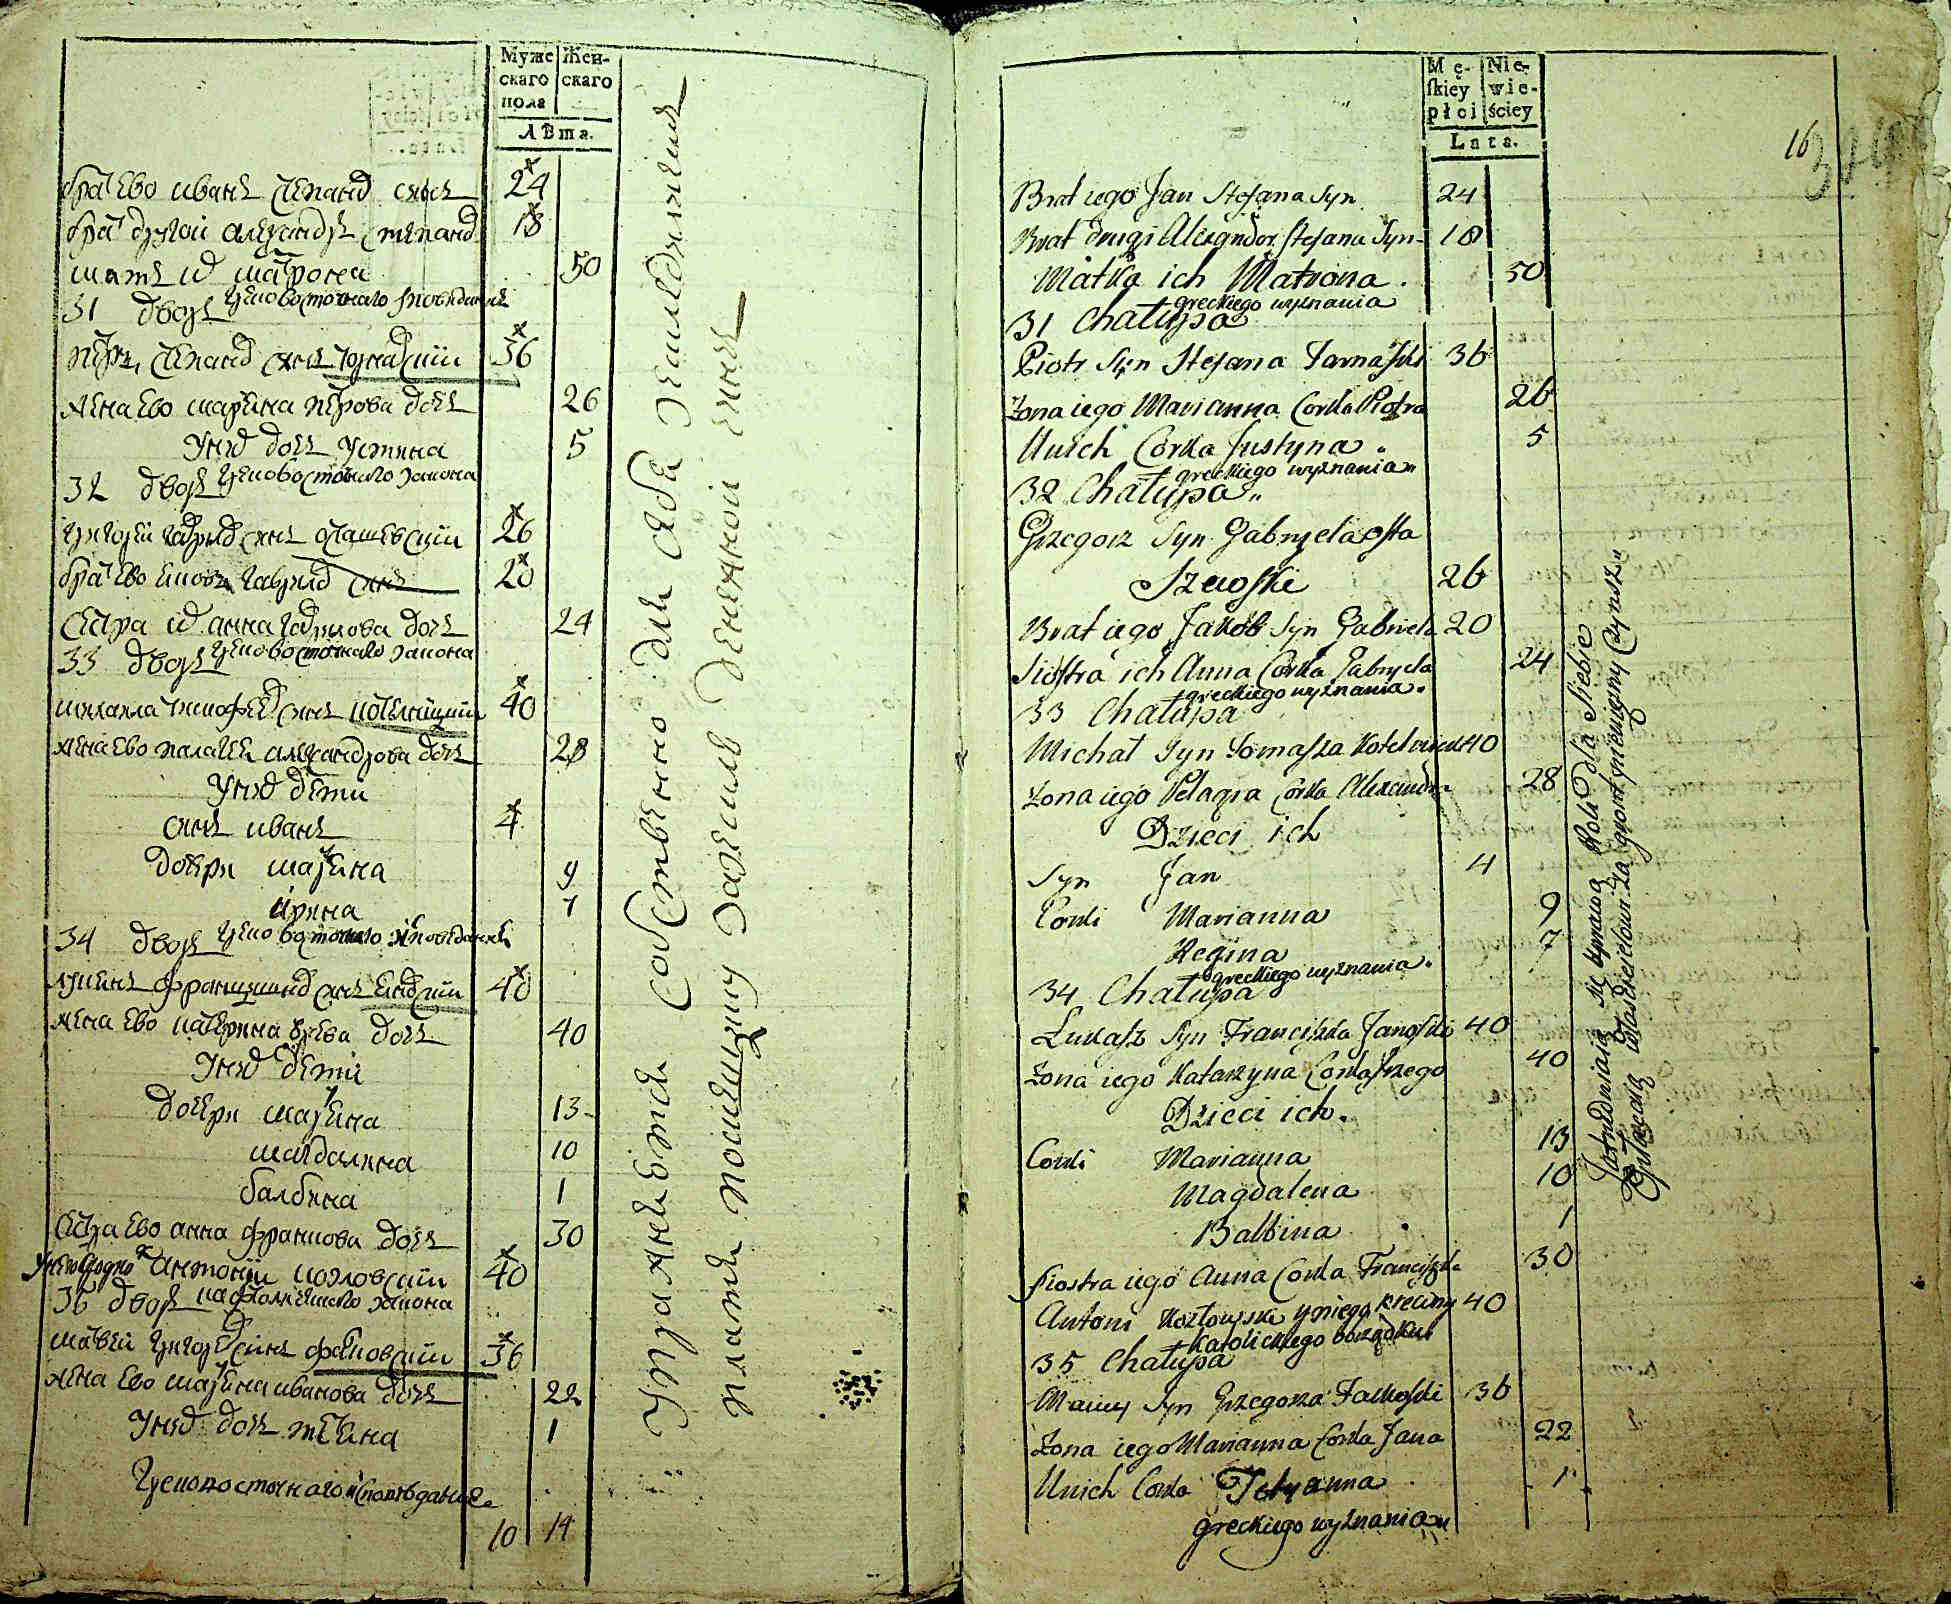 Муже
скаго
пола
Жен-
скаго
Лѣта.
братъ ево иванъ степанов сынъ 24
братъ другой александръ степанов 18
мать их матрона 50
31 дворъ грековосточнаго исповеданія
петръ степанов сынъ 36
жена ево марияна петрова дочь 26
У них дочь Устина 5
32 дворъ грековосточнаго закона
григорей гаврилов сынъ осташевский 26
братъ ево яковъ гаврилов сынъ 20
сестра их анна гаврилова дочь 24
33 дворъ грековосточнаго закона
михаила тимофеев сынъ 40
жена ево палагея александрова дочь 28
У них дети
сынъ иванъ 4
дочери марияна 9
ирина 7
34 дворъ грековосточнаго исповеданія
сынъ 40
жена ево катерина дочь 40
У них дети
дочери марияна 13
магдалина 10
балбина 1
сестра ево анна францова дочь 30
У нево антоній козловский 40
36 дворъ закона
матвей григорев сынъ фалковский 36
жена ево марияна иванова дочь 22
У них дочь тетяна 1
Грекопосточнаго исповѣданія
10 14
Упражняются собственно для себя землѣделием
платят помещику денежной
Mę-
skiey
płci
Nie-
wie-
ściey
Lata.
16
Brat iego Jan Stefana Syn 24
Brat drugi Alexander Stefana Syn 18
Matka ich Matrona 50
31 Chałupa greckiego wyznania
Piotr Syn Stefana Tarnaski 36
Zona iego Marianna Corka Piotra 26
Unich Corka Justyna 5
32 Chałupa greckiego wyznania
Grzegorz Syn Gabryela Osta
Szewski 26
Brat iego Jakób Syn Gabriela 20
Siostra ich Anna Corka Gabryela 24
33 Chałupa greckiego wyznania
Michał Syn Tomasza 40
Zona iego Pelagia Corka Alexandra 28
Dzieci ich
Syn Jan 4
Corki Marianna 9
Regina 7
34 Chałupa greckiego wyznania
Łukasz Syn Franciszka Janoski 40
Zona iego Katarzyna Corka 40
Dzieci ich
Corki Marianna 13
Magdalena 10
Balbina 1
Siostra iego Anna Corka Franciszka 30
Antoni Kozłowski u niego 40
35 Chałupa Katolickiego obrządku
Maciey Syn Grzegorza Falkoski 36
Zona iego Marianna Corka Jana 22
Unich Corka Tetyanna 1
greckiego wyznania
Zatrudniaią się uprawą Roli dla Siebie
Opłacaią właścicielowi za gront pienięzny Czynsz